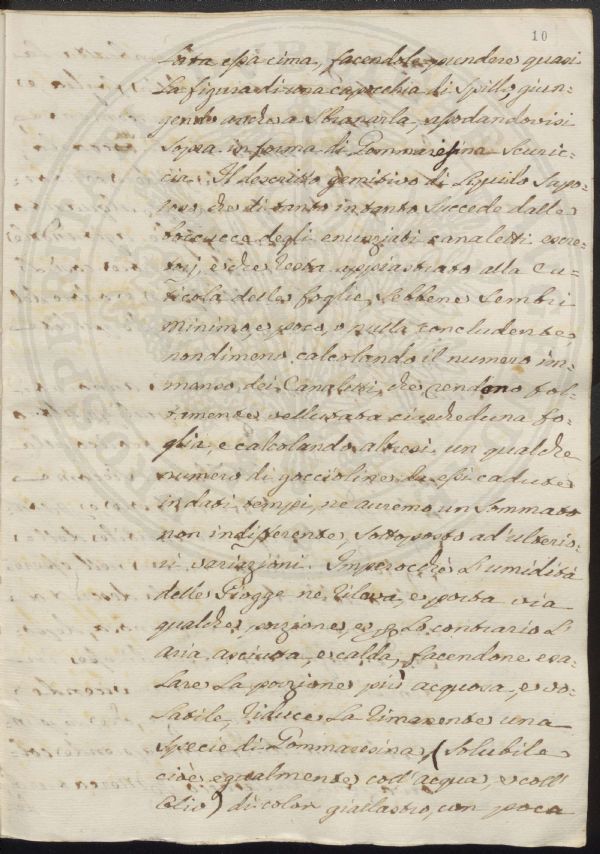 10
lata essa cima, facendole prendere quasi
la figura di una capocchia di Spillo, giun-
gendo anche a Sbianarla, assodandovisi
sopra in forma di Gommaresina Scuric-
cia. Il descritto gemitivo di liquido Sapo-
noso, che di tanto in tanto Succede dalle
boccucce degli enunziati canaletti escre-
torj, e che resta appiastrato alla Cu-
ticola delle foglie, Sebbene Sembri
minimo, e poco, o nulla concludente,
nondimeno calcolando il numero im-
menso dei Canaletti, che rendono fol-
timente vellutata ciascheduna fo-
glia, e calcolando altresì un qualche
numero di goccioline da essi cadute
in dati tempi, ne avremo un Sommato
non indifferente, sottoposto ad ulterio-
ri variazioni. Imperocchè l'umidità
delle Piogge ne rileva, e porta via
qualche porzione, e per lo contrario l'
aria asciutta, e calda, facendone esa-
lare la porzione più acquosa, e vo-
latile, riduce la rimanente una
Specie di Gommaresina (Solubile
cioè egualmente coll'acqua, e coll'
Olio) di color giallastro, con poca